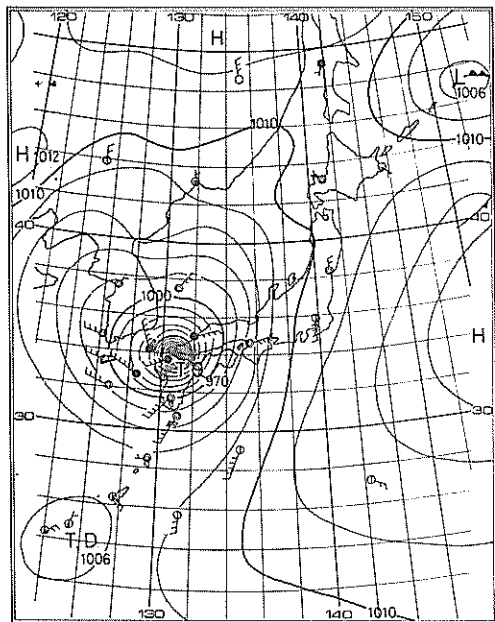 120 130 140 150
H
L
1006
1010
1010
H 1012
1010
40
40
1000
H
T
970
30
30
T D
1006
130 140 1010